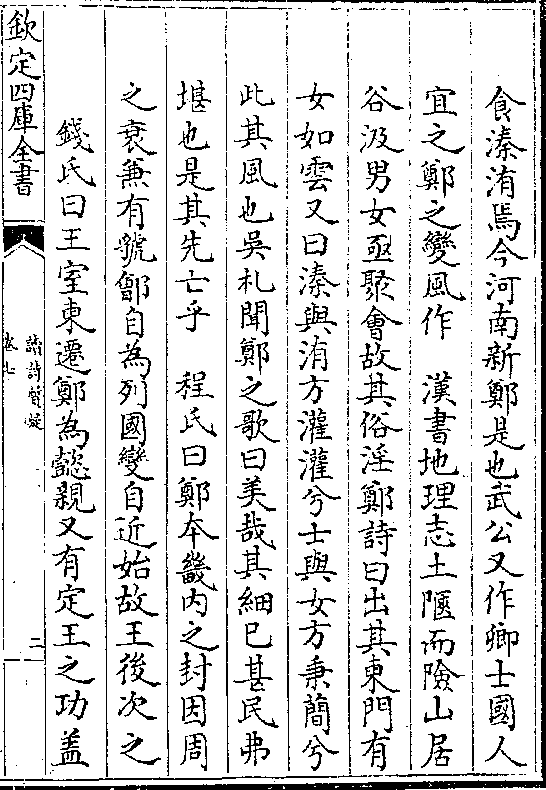 食溱洧焉今河南新鄭是也武公又作卿士國人
宜之鄭之變風作　漢書地理志土陿而險山居
谷汲男女亟聚會故其俗淫鄭詩曰出其東門有
女如雲又曰溱與洧方灌灌兮士與女方秉蕳兮
此其風也吳札聞鄭之歌曰美哉其細已甚民弗
堪也是其先亡乎　程氏曰鄭本畿內之封因周
之衰兼有虢鄶自為列國變自近始故王後次之
錢氏曰王室東遷鄭為懿親又有定王之功盖
欽定四庫全書
卷七
二